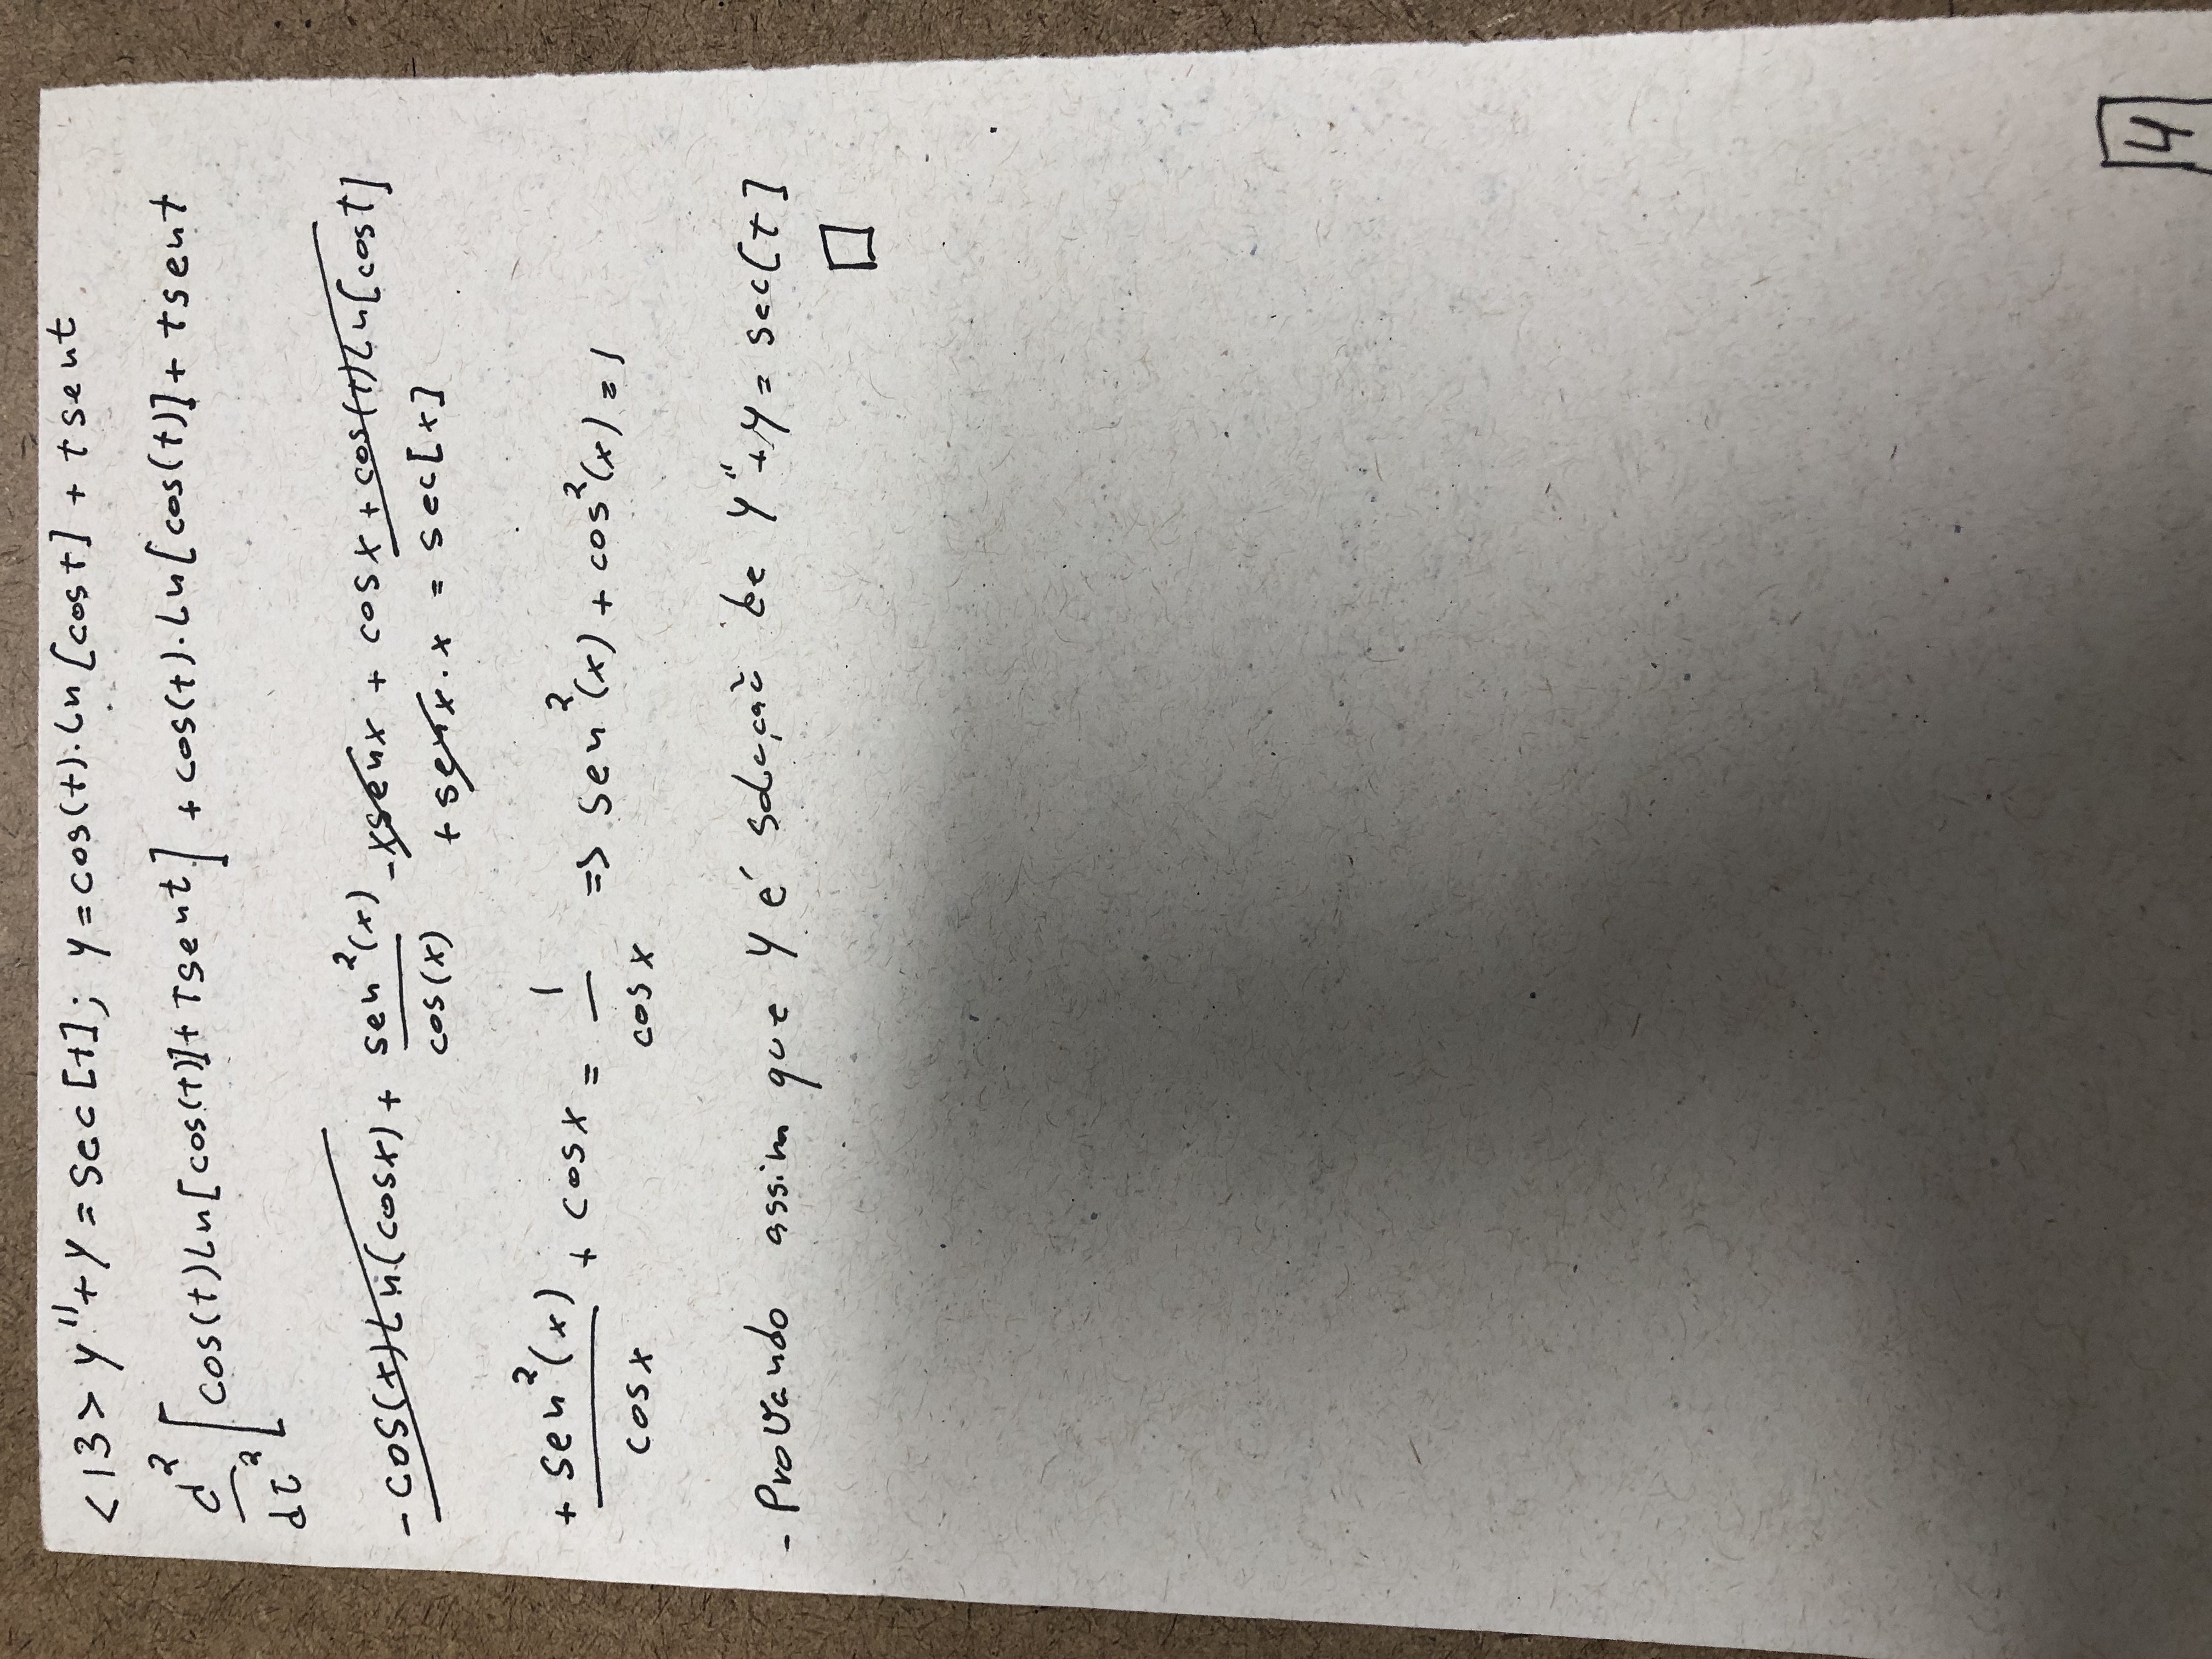 <13> y''+y = sec[t]; y=cos(t).ln[cost] + tsent
d²/dt² [cos(t)ln[cos(t)]+tsent] + cos(t).ln[cos(t)] + tsent
-cos(x)ln(cosx) + sen²(x)/cos(x) -xsenx + cosx + cos(t)ln[cost]
+ senx.x = sec[x]
+ sen²(x)/cosx + cosx = 1/cosx => sen²(x) + cos²(x) = 1
- Provando assim que y é solução de y''+y = sec[t]
□
4